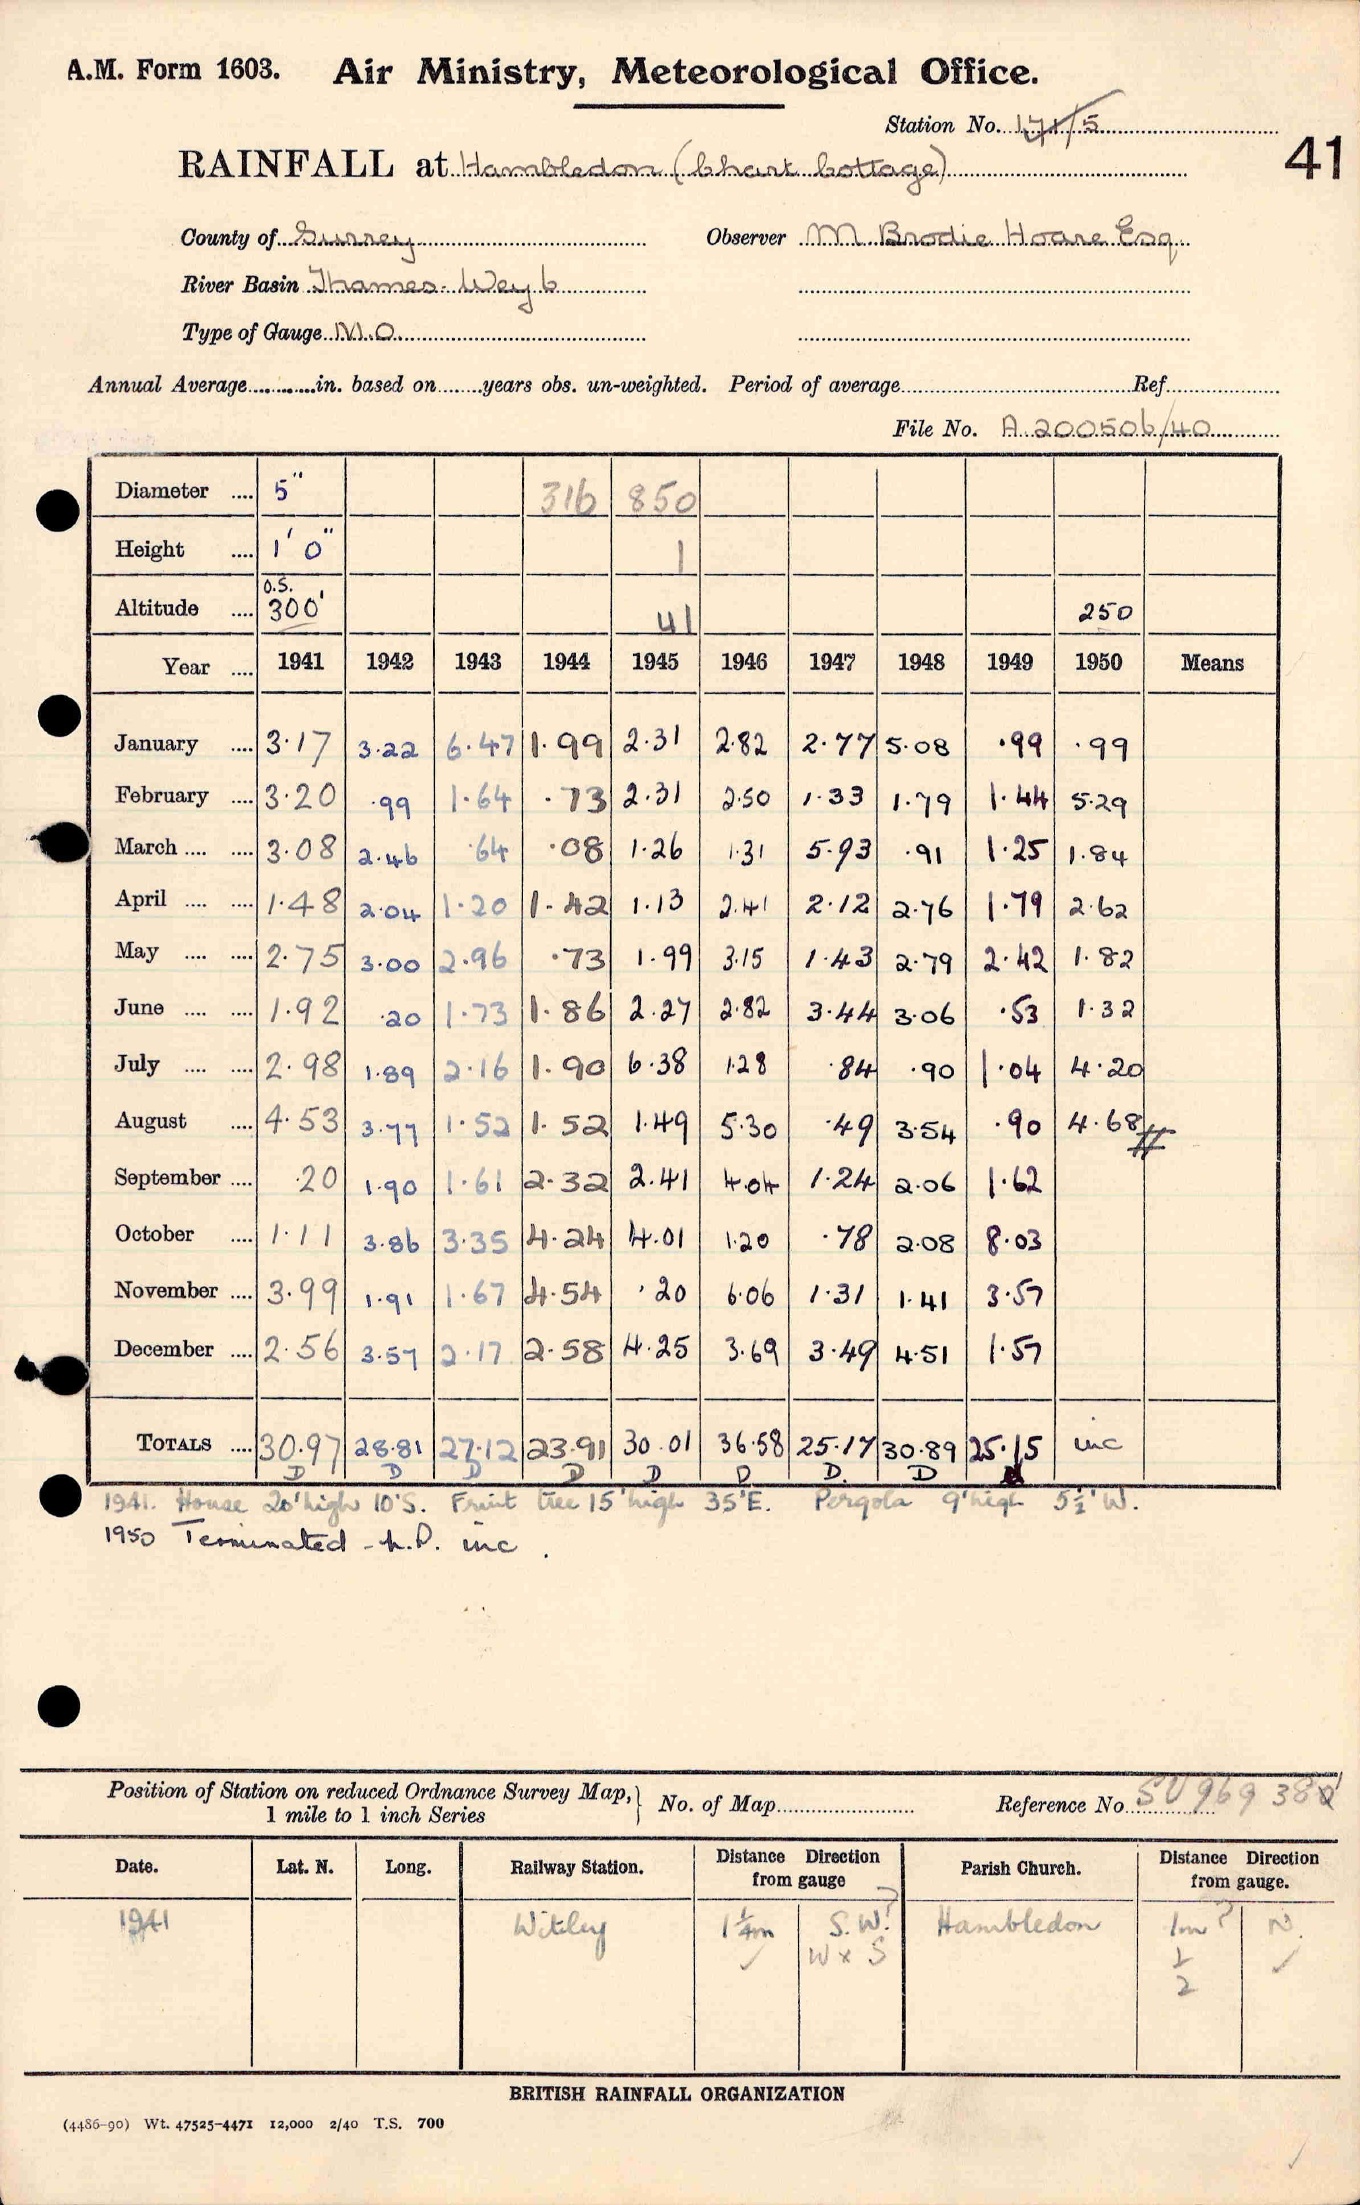 A.M. Form 1603. Air Ministry, Meteorological Office.
Station No. 171/5
41
RAINFALL at Hambledon (Chart Cottage)
County of Surrey Observer M Brodie Hoare Esq
River Basin Thames. Wey b
Type of Gauge M.O.
Annual Average............in. based on.......years obs. un-weighted. Period of average.......... Ref..........
File No. A 200506/40
Diameter .... 5" 316 850
Height .... 1' 0" 1
Altitude .... O.S. 300' 41 250
Year .... 1941 1942 1943 1944 1945 1946 1947 1948 1949 1950 Means
January .... 3.17 3.22 6.47 1.99 2.31 2.82 2.77 5.08 .99 .99
February .... 3.20 .99 1.64 .73 2.31 2.50 1.33 1.79 1.44 5.29
March .... .... 3.08 2.46 .64 .08 1.26 1.31 5.93 .91 1.25 1.84
April .... .... 1.48 2.04 1.20 1.42 1.13 2.41 2.12 2.76 1.79 2.62
May .... .... 2.75 3.00 2.96 .73 1.99 3.15 1.43 2.79 2.42 1.82
June .... .... 1.92 .20 1.73 1.86 2.27 2.82 3.44 3.06 .53 1.32
July .... .... 2.98 1.89 2.16 1.90 6.38 1.28 .84 .90 1.04 4.20
August .... 4.53 3.77 1.52 1.52 1.49 5.30 .49 3.54 .90 4.68
September .... .20 1.90 1.61 2.32 2.41 4.04 1.24 2.06 1.62
October .... 1.11 3.86 3.35 4.24 4.01 1.20 .78 2.08 8.03
November .... 3.99 1.91 1.67 4.54 .20 6.06 1.31 1.41 3.57
December .... 2.56 3.57 2.17 2.58 4.25 3.69 3.49 4.51 1.57
TOTALS .... 30.97 28.81 27.12 23.91 30.01 36.58 25.17 30.89 25.15 inc
D D D D D D D. D
1941. House 20' high 10'S. Fruit tree 15' high 35'E. Pergola 9' high 5½' W.
1950 Terminated - n.P. inc.
Position of Station on reduced Ordnance Survey Map, 1 mile to 1 inch Series } No. of Map.......... Reference No. SU 969 38
Date. Lat. N. Long. Railway Station. Distance Direction from gauge Parish Church. Distance Direction from gauge.
1941 Witley 1¼m S.W.? Hambledon 1m? N.
✓ W x S ½ ✓
BRITISH RAINFALL ORGANIZATION
(4486-90) Wt. 47525-4471 12,000 2/40 T.S. 700